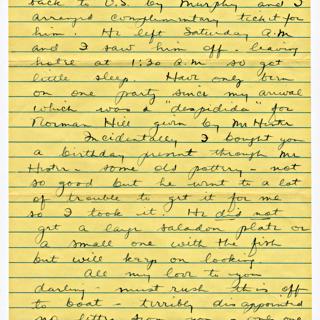 back to U.S. by Murphy and I
arranged complimentary ticket for
him. He left Saturday A.M
and I saw him off - leaving
hotel at 1:30 A.M so got
little sleep. Have only been
on one party since my arrival
which was a "despidida" for
Norman Hill given by Mr Hester
Incidentally I bought you
a birthday present through Mr
Hester - some old pottery - not
so good but he went to a lot
of trouble to get it for me
so I took it. He did not
get a large saladon plate or
a small one with the fish
but will keep on looking.
All my love to you
darling - must rush this off
to boat - terribly disappointed
no letter from you - only one